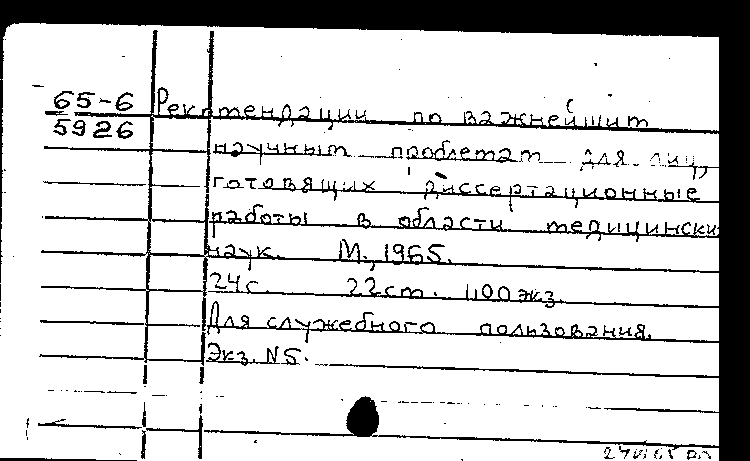 65-6
5926
Рекомендации по важнейшим
научным проблемам для лиц,
готовящих диссертационные
работы в области медицински
наук. М., 1965.
24с. 22см. 1,100 экз.
Для служебного пользования.
Экз. N5.